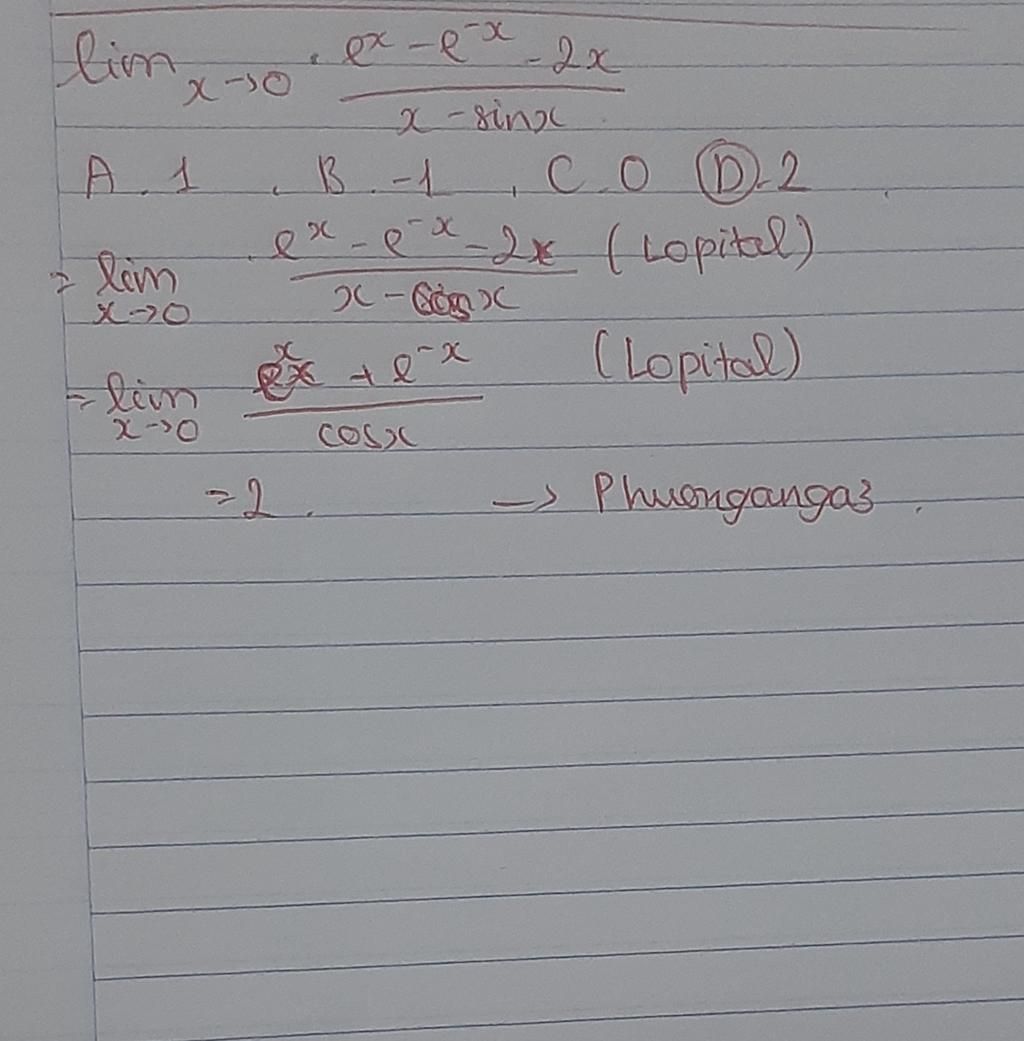 lim x→0 e^x - e^-x - 2x / x - sinx
A. 1 . B. -1 , C. 0 D. 2
= lim x→0 e^x - e^-x - 2x / x - cosx (Lopital)
= lim x→0 e^x + e^-x / cosx (Lopital)
= 2 . → Phuonganga3 .